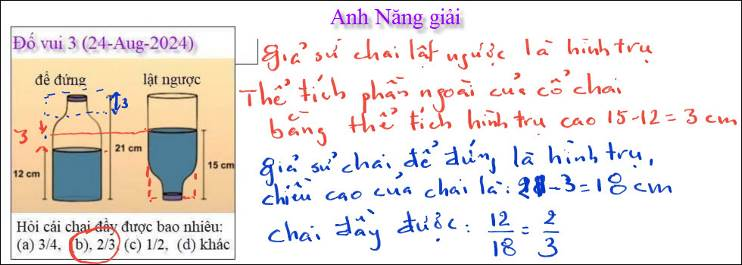 Anh Năng giải
Đố vui 3 (24-Aug-2024)
để đứng
lật ngược
3
3
21 cm
12 cm
15 cm
Hỏi cái chai đầy được bao nhiêu:
(a) 3/4, (b), 2/3, (c) 1/2, (d) khác
giả sử chai lật ngược là hình trụ
Thể tích phần ngoài của cổ chai
bằng thể tích hình trụ cao 15-12 = 3 cm
giả sử chai để đứng là hình trụ,
chiều cao của chai là: 21-3 = 18 cm
chai đầy được: 12/18 = 2/3